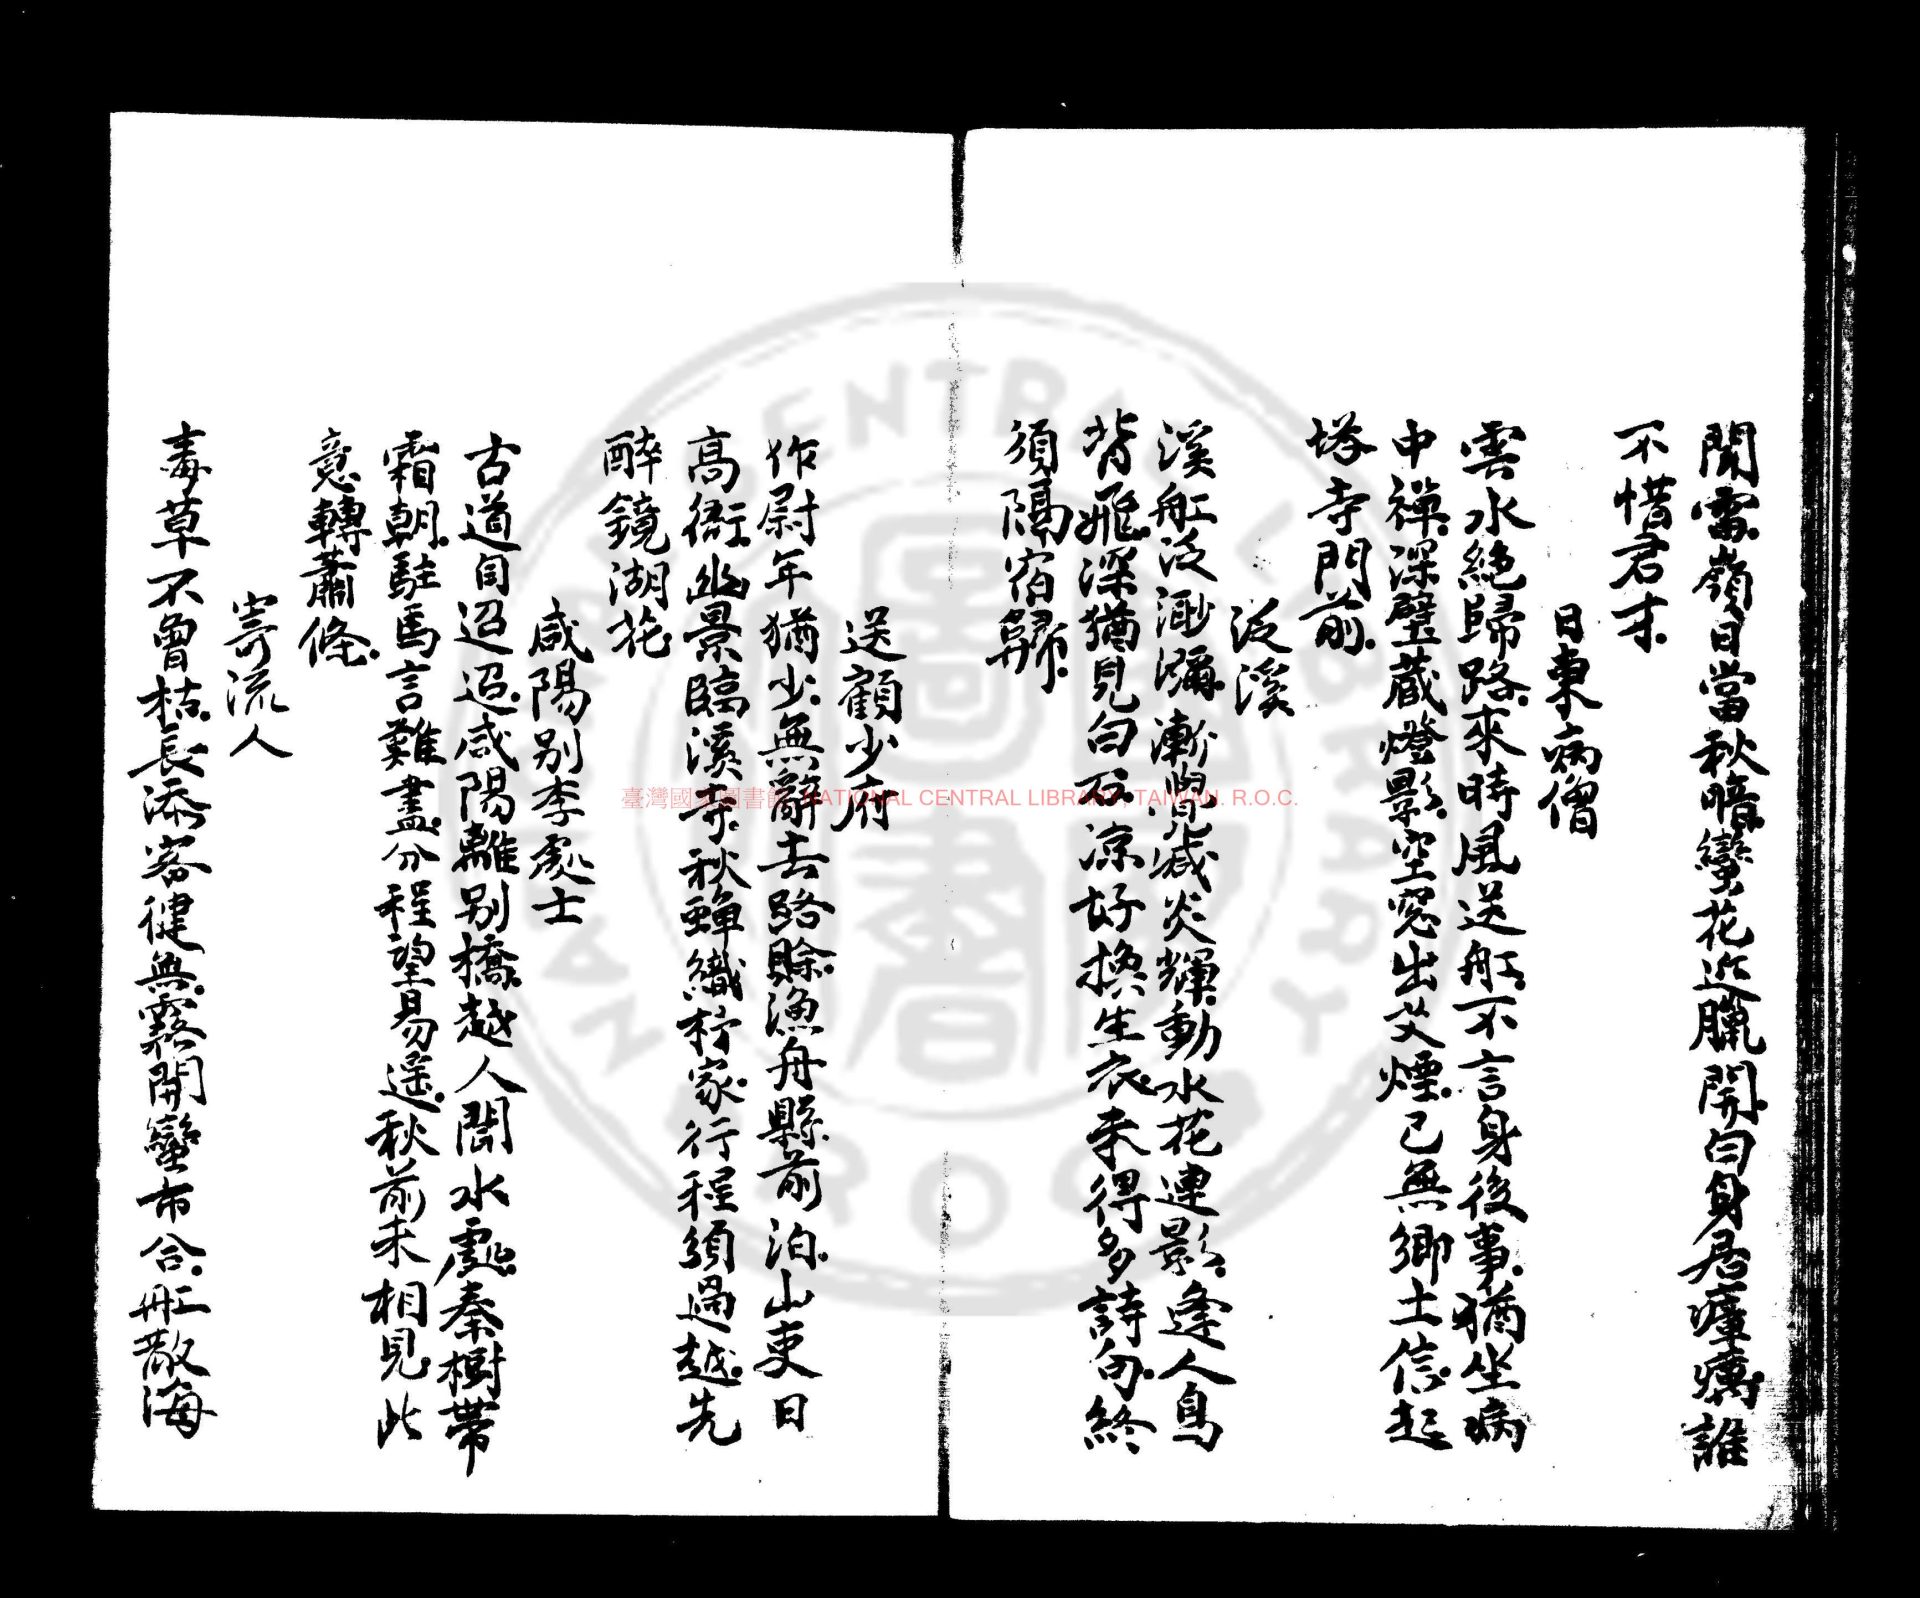 聞雷嶺日當秋暗蠻花近臘開白身居瘴癘誰
不惜君才
日東病僧
雲水絕歸路來時風送舡不言身後事猶坐病
中禪深壁藏燈影空窓出艾煙已無鄉土信起
塔寺門前
泛溪
溪舡泛渺瀰漸覺減炎輝動水花連影逢人鳥
背飛深猶見白石凉好換生衣未得多詩句終
須隔宿歸
送顧少府
作尉年猶少無辭去路賒漁舟縣前泊山吏日
高衙幽景臨溪寺秋蟬織杼家行程須過越先
醉鏡湖花
咸陽別李處士
古道自迢迢咸陽離別橋越人聞水處秦樹帶
霜朝駐馬言難盡分程望易遙秋前未相見此
意轉蕭條
寄流人
毒草不曾枯長添客健無霧開蠻市合舡散海
臺灣國家圖書館 NATIONAL CENTRAL LIBRARY, TAIWAN. R.O.C.